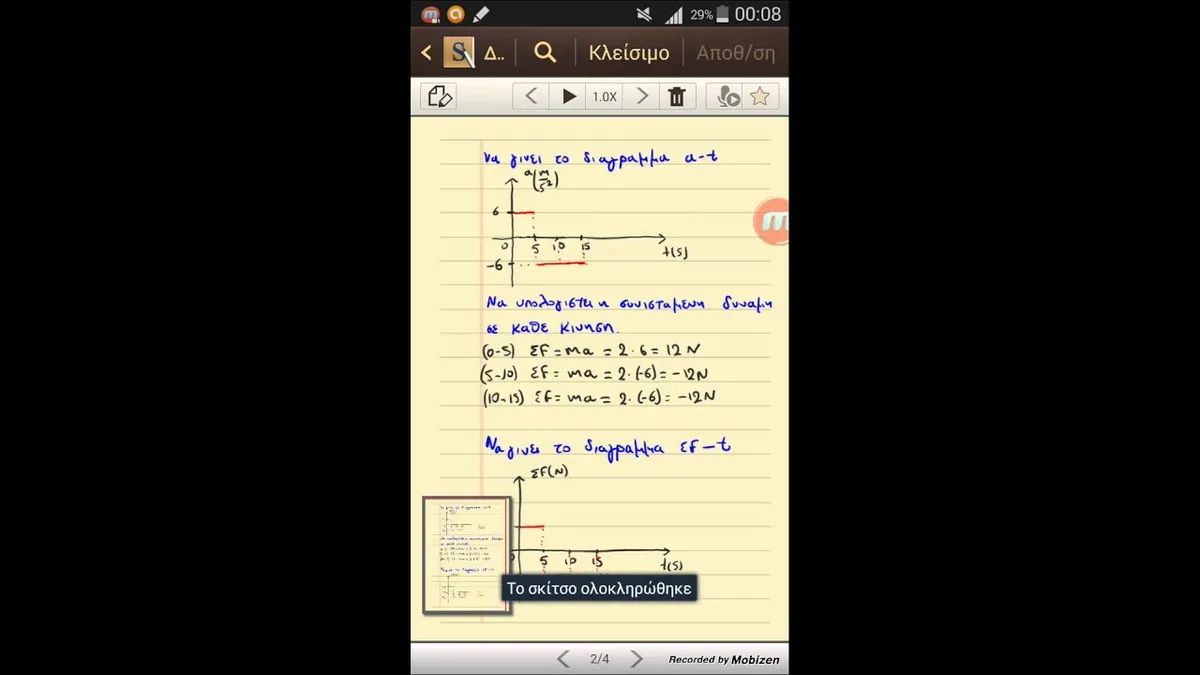 29% 00:08
S Δ.. Κλείσιμο Αποθ/ση
1.0X
Να γινει το διαγραμμα a-t
a(m/s²)
6
0 5 10 15 t(s)
-6
Να υπολογιστει η συνισταμενη δυναμη
σε καθε κινηση.
(0-5) ΣF = ma = 2 · 6 = 12 N
(5-10) ΣF = ma = 2 · (-6) = -12N
(10-15) ΣF = ma = 2 · (-6) = -12N
Να γινει το διαγραμμα ΣF-t
ΣF(N)
5 10 15 t(s)
Το σκίτσο ολοκληρώθηκε
2/4 Recorded by Mobizen